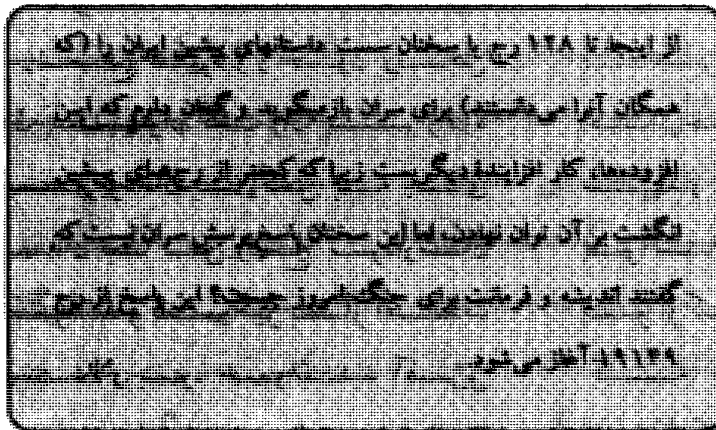 از اینجا تا ۱۲۸ رج با سخنان سست داستانهای پیشین ایران را (که
همگان آنرا می‌دانستند) برای سران بازمیگوید و گمان دارم که این
افزوده‌ها، کار افزایندهٔ دیگریست زیرا که کمتر از رج‌های پیشین
انگشت بر آن توان نهادن، اما این سخنان پاسخ پرسش سران نیست که
گفتند اندیشه و فرمانت برای جنگ امروز چیست؟ این پاسخ از رج
۱۹۱۴۹ آغاز می‌شود.